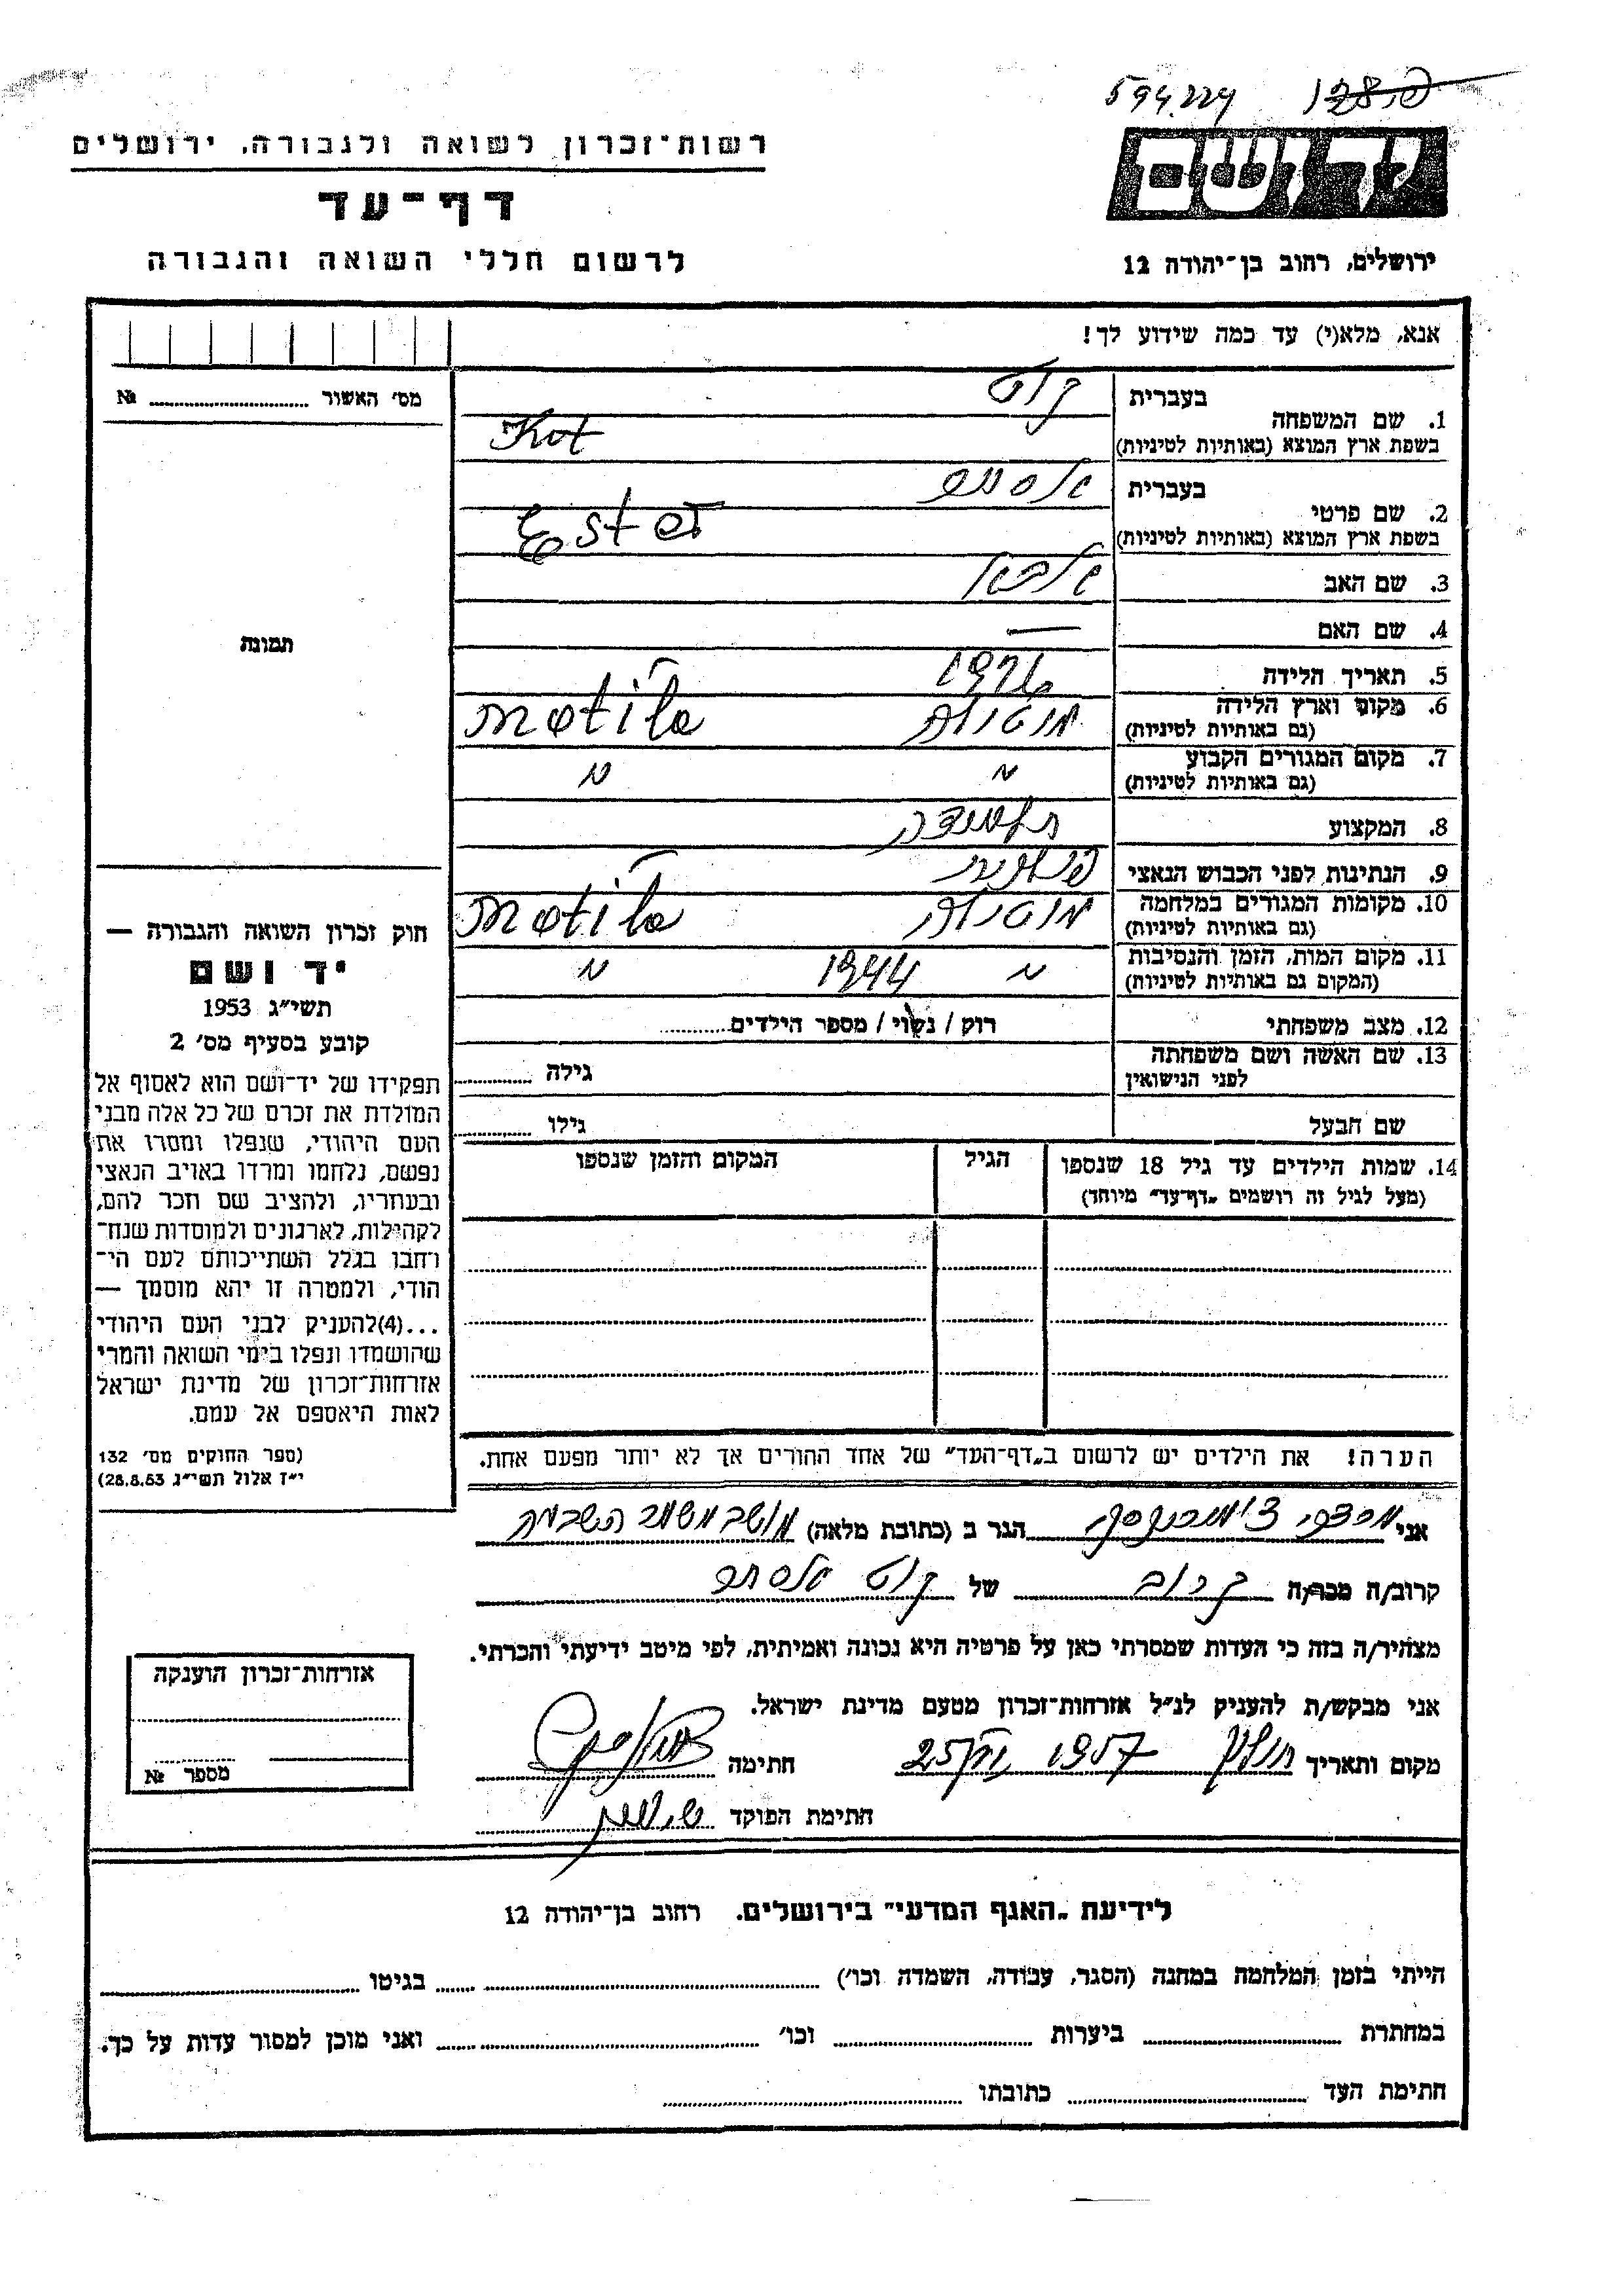 594.224 128.
רשות־זכרון לשואה ולגבורה, ירושלים
יד ושם
דף־עד
לרשום חללי השואה והגבורה
ירושלים, רחוב בן־יהודה 12
אנא, מלא(י) עד כמה שידוע לך!
מס' האשור ........ №
בעברית קוט
1. שם המשפחה
בשפת ארץ המוצא (באותיות לטיניות) Kot
בעברית אסתר
2. שם פרטי
בשפת ארץ המוצא (באותיות לטיניות) Ester
3. שם האב
4. שם האם —
5. תאריך הלידה 1926
6. מקום וארץ הלידה
(גם באותיות לטיניות) מוטילה Motila
7. מקום המגורים הקבוע
(גם באותיות לטיניות) " "
8. המקצוע תלמידה
9. הנתינות לפני הכבוש הנאצי פולנית
10. מקומות המגורים במלחמה
(גם באותיות לטיניות) מוטילה Motila
11. מקום המות, הזמן והנסיבות
(המקום גם באותיות לטיניות) " 1944 "
12. מצב משפחתי רוק / נשוי / מספר הילדים........
13. שם האשה ושם משפחתה
לפני הנישואין גילה ........
שם הבעל גילו ........
14. שמות הילדים עד גיל 18 שנספו הגיל המקום והזמן שנספו
(מעל לגיל זה רושמים „דף־עד" מיוחד)
הערה! את הילדים יש לרשום ב„דף־העד" של אחד ההורים אך לא יותר מפעם אחת.
תמונה
חוק זכרון השואה והגבורה —
יד ושם
תשי"ג 1953
קובע בסעיף מס' 2
תפקידו של יד־ושם הוא לאסוף אל
המולדת את זכרם של כל אלה מבני
העם היהודי, שנפלו ומסרו את
נפשם, נלחמו ומרדו באויב הנאצי
ובעוזריו, ולהציב שם וזכר להם,
לקהילות, לארגונים ולמוסדות שנח־
רבו בגלל השתייכותם לעם הי־
הודי, ולמטרה זו יהא מוסמך —
...(4)להעניק לבני העם היהודי
שהושמדו ונפלו בימי השואה והמרי
אזרחות־זכרון של מדינת ישראל
לאות היאספם אל עמם.
(ספר החוקים מס' 132
י"ז אלול תשי"ג 28.8.53)
אני מרדכי הגר ב (כתובת מלאה) מושב משמר השבעה
קרוב/ה מכר/ה קרוב של קוט אסתר
מצהיר/ה בזה כי העדות שמסרתי כאן על פרטיה היא נכונה ואמיתית, לפי מיטב ידיעתי והכרתי.
אני מבקש/ת להעניק לנ"ל אזרחות־זכרון מטעם מדינת ישראל.
מקום ותאריך חולון 1957 25 חתימה
חתימת הפוקד
אזרחות־זכרון הוענקה
מספר №
לידיעת „האגף המדעי" בירושלים. רחוב בן־יהודה 12
הייתי בזמן המלחמה במחנה (הסגר, עבודה, השמדה וכו') ........ בגיטו ........
במחתרת ........ ביערות ........ וכו' ........ ואני מוכן למסור עדות על כך.
חתימת העד ........ כתובתו ........